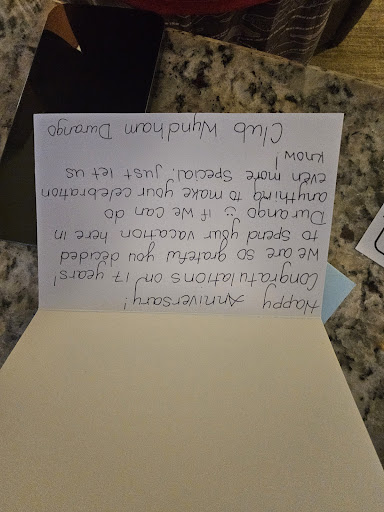 Happy Anniversary!
Congratulations on 17 years!
We are so grateful you decided
to spend your vacation here in
Durango ☺ If we can do
anything to make your celebration
even more special, just let us
know!
Club Wyndham Durango